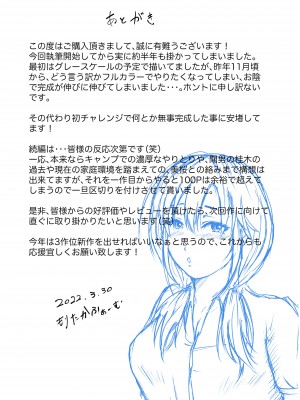 あとがき
この度はご購入頂きまして、誠に有難うございます！
今回執筆開始してから実に約半年も掛かってしまいました。
最初はグレースケールの予定で描いてましたが、昨年11月頃
から、どう言う訳かフルカラーでやりたくなってしまい、お陰
で完成が伸びに伸びてしまいました･･･。ホントに申し訳ない
です。
その代わり初チャレンジで何とか無事完成した事に安堵して
ます！
続編は･･･皆様の反応次第です（笑）
一応、本来ならキャンプでの濃厚なやりとりや、間男の桂木の
過去や現在の家庭環境を踏まえての、美桜との絡みまで構想は
出来てますが、それを一作目からやると100Pは余裕で超えて
しまうので一旦区切りを付けさせて貰いました。
是非、皆様からの好評価やレビューを頂けたら、次回作に向けて
直ぐに取り掛かりたいと思います（笑）
今年は3作位新作を出せればいいなぁと思うので、これからも
応援宜しくお願い致します！
2022.3.30
もりたかふぁーむ